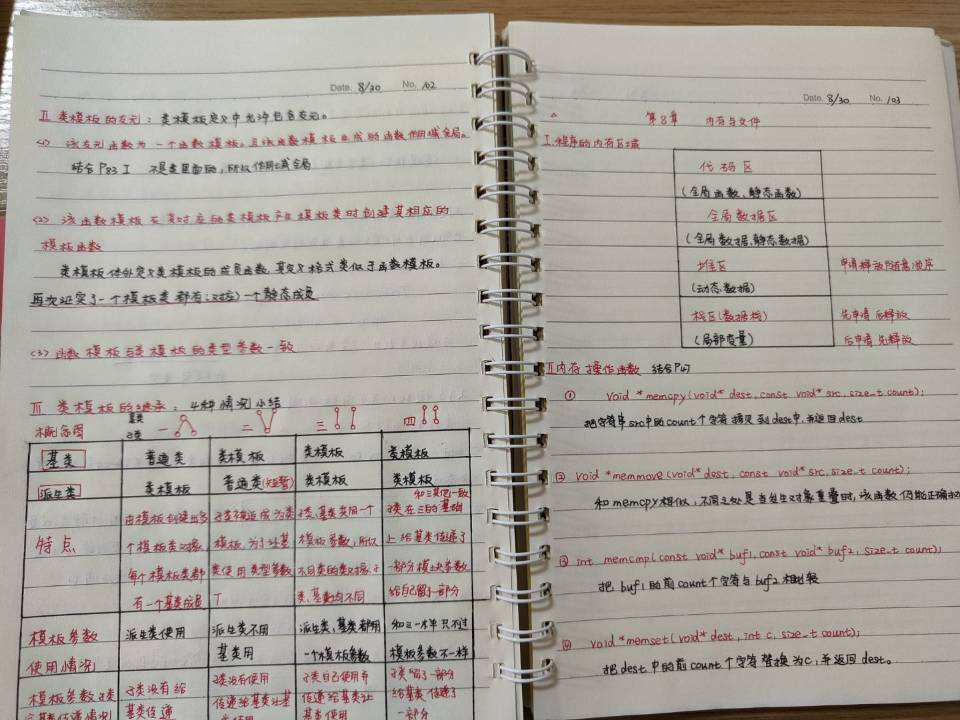 Date. 8/30 No. 102
II 类模板的友元：类模板定义中允许包含友元。
(1) 该友元函数为一个函数模板，且该函数模板生成的函数作用域全局。
结合 P83 I 不是类里面的，所以作用域全局
(2) 该函数模板在其对应的类模板产生模板类时创建其相应的
模板函数
类模板体外定义类模板的成员函数，其定义格式类似于函数模板。
再次证实了一个模板类都有(对应)一个静态成员
(3) 函数模板与类模板的类型参数一致
III 类模板的继承：4种情况小结
概念图 基类 子类 一 二 三 四
基类 普通类 类模板 类模板 类模板
派生类 类模板 普通类 类模板 类模板
和三其他一致
由模板创建出多 子类不能成为类 子类、基类共用一个 子类在三的基础
特点 个模板类对象， 模板，为了让基 模板参数，所以 上给基类传递了
每个模板类都 类使用类型参数 不同类的类对象，子 一部分模板参数
有一个基类成员 T 类、基类均不同 给自己留了一部分
模板参数 派生类使用 派生类不用 派生类、基类都用 和三一样只不过
使用情况 基类用 一个模板参数 模板参数不一样
模板参数子类 子类没有给 子类没有使用 子类自己使用并 子类留了一部分
向基类传递情况 基类传递 传递给基类让基 传递给基类让 给基类传递了
类使用 基类使用 一部分
Date. 8/30 No. 103
第8章 内存与文件
I. 程序的内存区域
代码区
(全局函数、静态函数)
全局数据区
(全局数据、静态数据)
堆区 申请释放随意顺序
(动态数据)
栈区(数据栈) 先申请后释放
(局部变量) 后申请先释放
II 内存操作函数 结合P47
① void *memcpy(void* dest, const void* src, size_t count);
把字符串src中的count个字符拷贝到dest中，并返回dest
② void *memmove(void* dest, const void* src, size_t count);
和memcpy相似，不同之处是当发生对象重叠时，该函数仍能正确
③ int memcmp(const void* buf1, const void* buf2, size_t count);
把buf1的前count个字符与buf2相比较
④ void *memset(void* dest, int c, size_t count);
把dest中的前count个字符替换为c，并返回dest。